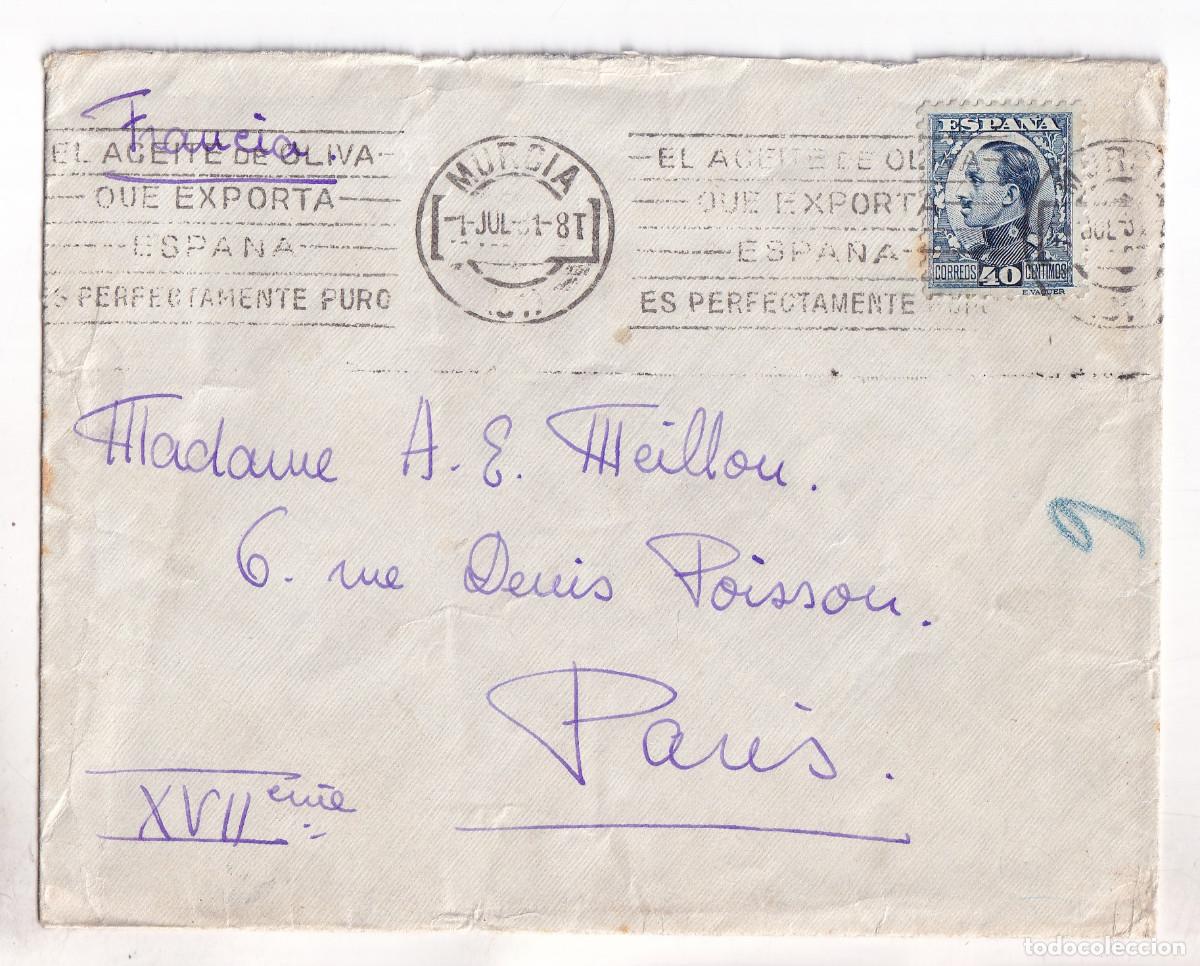 Francia.
EL ACEITE DE OLIVA
QUE EXPORTA
ESPANA
ES PERFECTAMENTE PURO
MURCIA
1-JUL-31-8T
EL ACEITE DE OLIVA
QUE EXPORTA
ESPANA
ES PERFECTAMENTE PURO
ESPAÑA
CORREOS 40 CENTIMOS
E. VAQUER
Madame A. E. Meillon.
6. rue Denis Poisson.
Paris.
XVIIème
9
todocoleccion